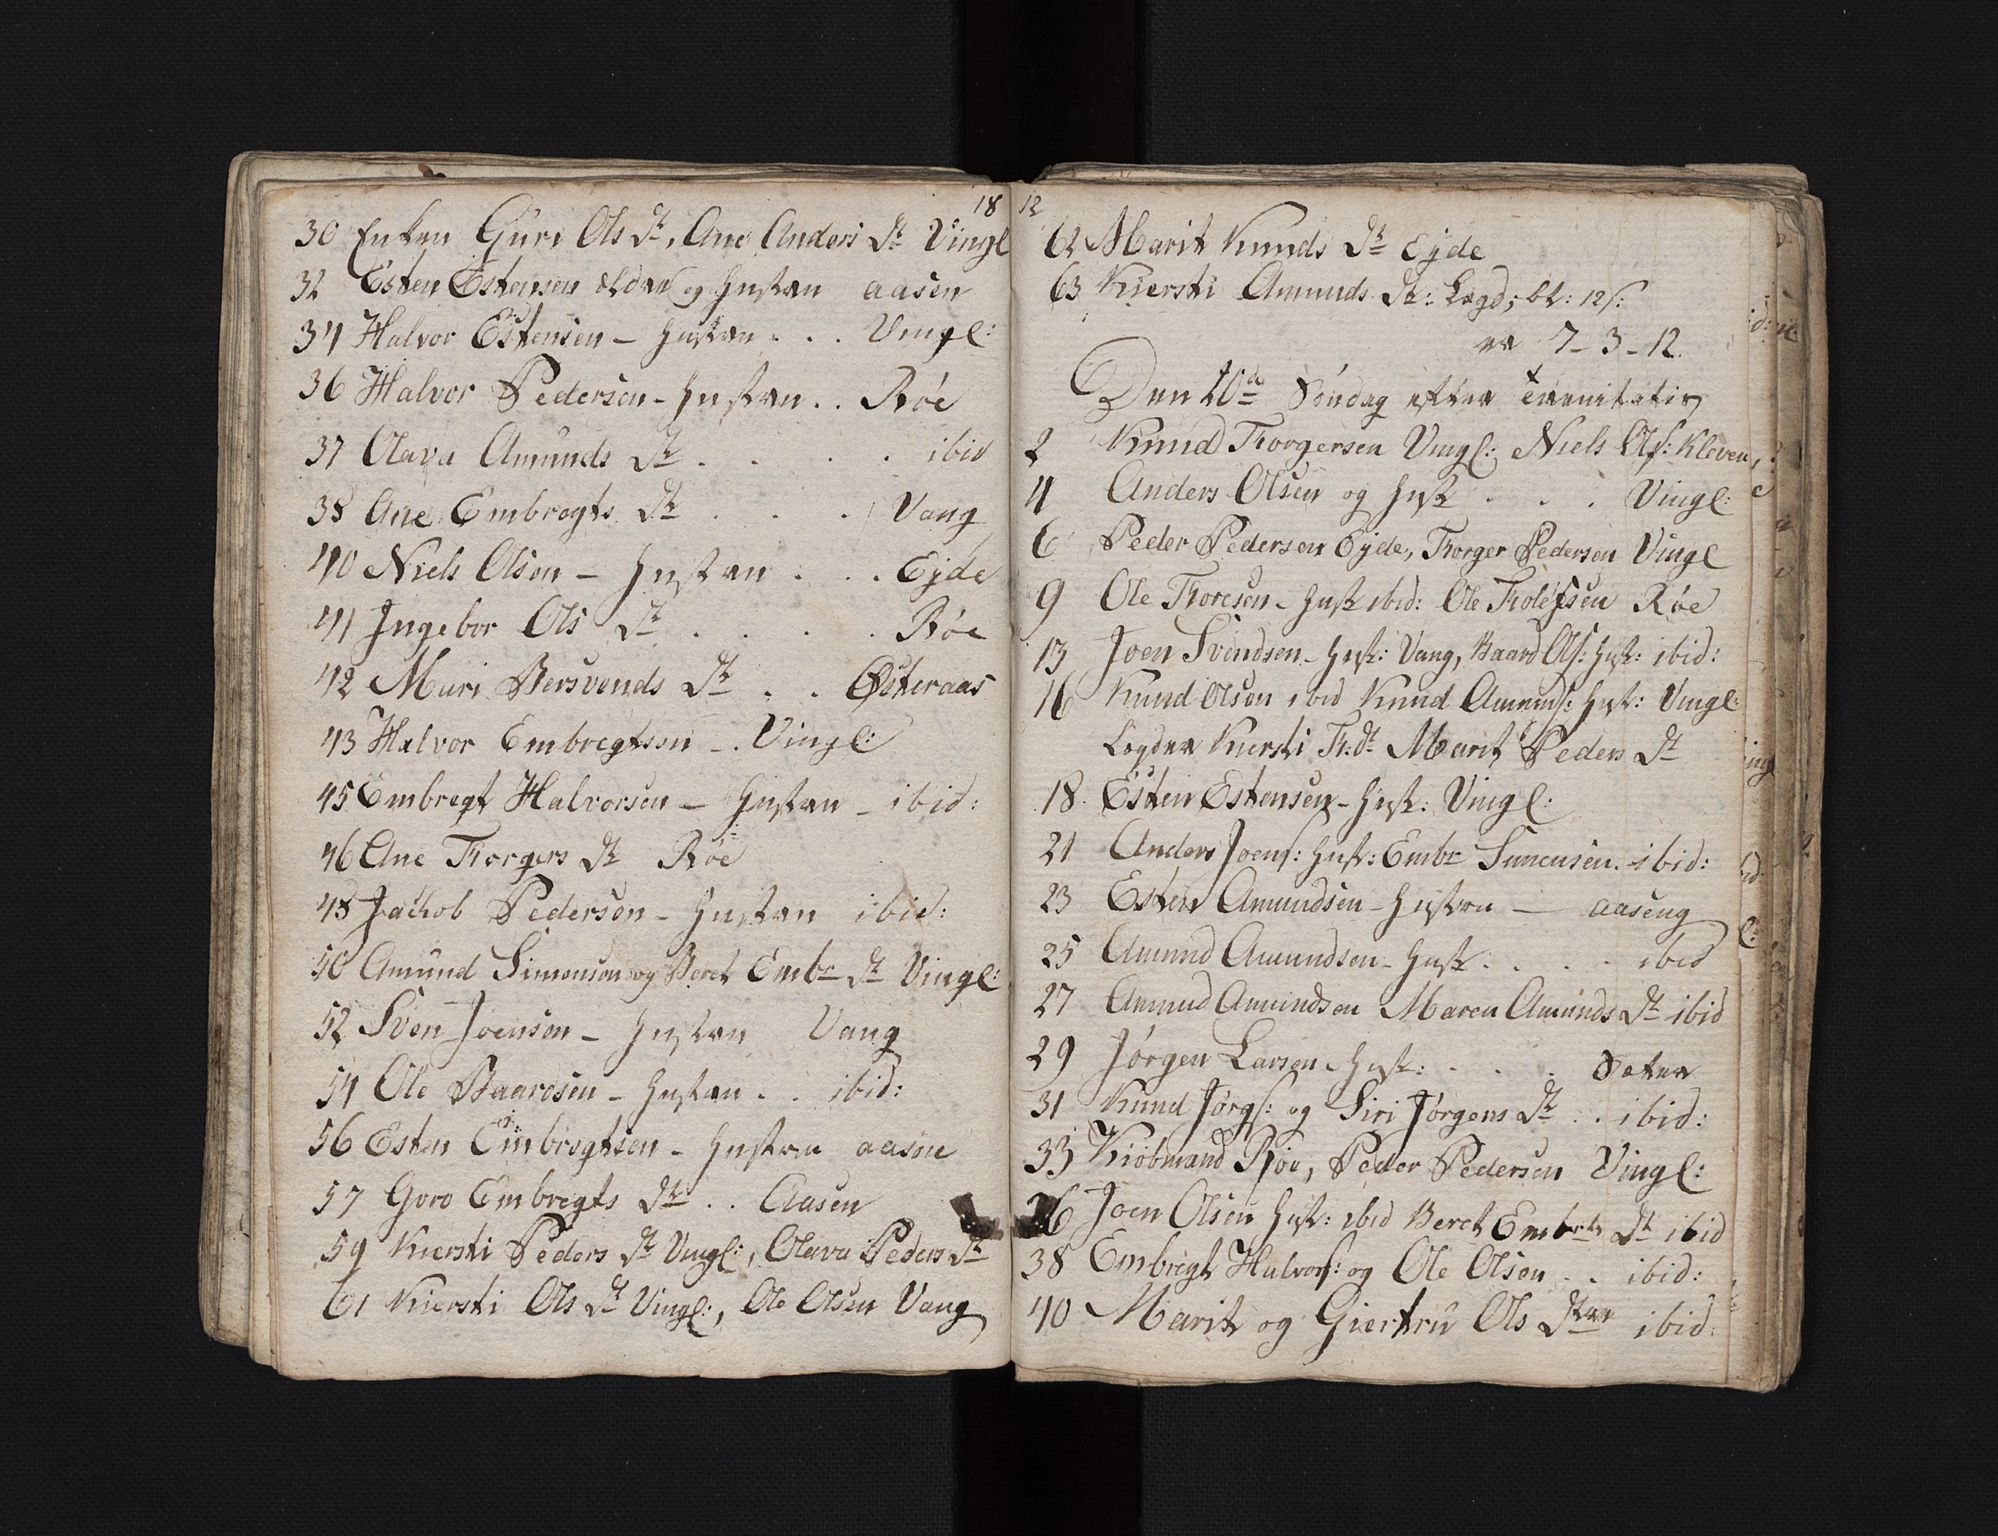 18
30 Enken Guri Ols Dt., Ane Anders Dt Vingl
32 Esten Estensen ældre og Hustru aasen
34 Halvor Estensen - Hustru . . . Vingl:
36 Halvor Pedersen - Hustru . . Røe
37 Olava Amunds Dt . . . . ibid
38 Ane Embregts Dt . . . Vang
40 Niels Olsen - Hustru . . . Ejde
41 Ingebor Ols Dt . . . . Røe
42 Mari Bersvends Dt . . Østeraas
43 Halvor Embregtsen - . Vingl:
45 Embregt Halvorsen - Hustru - ibid:
46 Ane Torgers Dt Røe
48 Jachob Pedersen - Hustru ibid:
50 Amund Simensen og Beret Embr Dt Vingl:
52 Sven Joensen - Hustru Vang
54 Ole Baardsen - Hustru . . ibid:
56 Esten Embregtsen - Hustru aasen
57 Goro Embregts Dt: . . Aasen
59 Kiersti Peders Dt Vingl:, Olava Peders Dt
61 Kiersti Ols Dt Vingl:, Ole Olsen Vang
12
62 Marit Knuds Dt Ejde
63 Kiersti Amunds Dt: Lægd; bt: 12 s:
er 7 - 3 - 12.
Den 20de Søndag efter Trenitatis
2 Knud Torgersen Vingl: Niels Ols: Kleven,
4 Anders Olsen og Hust . . . Vingl:
6 Peder Pedersen Ejde, Torger Pedersen Vingl
9 Ole Toresen - Hust ibid: Ole Tolefsen Røe
13 Joen Svendsen - Hust: Vang, Baard Ols: Hust: ibid:
16 Knud Olsen ibid Knud Amunds: Hust: Vingl:
Kiersti T: Dt Marit Peders Dt
18 Esten Estensen - Hust: Vingl:
21 Anders Joens: Hust: Embr Simensen - ibid:
23 Esten Amundsen - Hustru — aaseng
25 Amund Amundsen - Hust . . . . ibid
27 Amund Amundsen Maren Amunds Dt ibid
29 Jørgen Larsen - Hust: . . . Sæter
31 Knud Jørgs: og Siri Jørgens Dt . . ibid:
33 Kiøbmand Røe, Peder Pedersen Vingl:
36 Joen Olsen Hust: ibid Beret Embrts Dt ibid
38 Embregt Halvors: og Ole Olsen . . ibid:
40 Marit og Giertru Ols Dtre ibid: